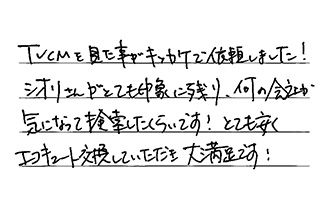 TVCMを見た事がキッカケで依頼しました!
シオリさんがとても印象に残り、何の会社か
気になって検索したくらいです!とても安く
エコキュート交換していただき大満足です!